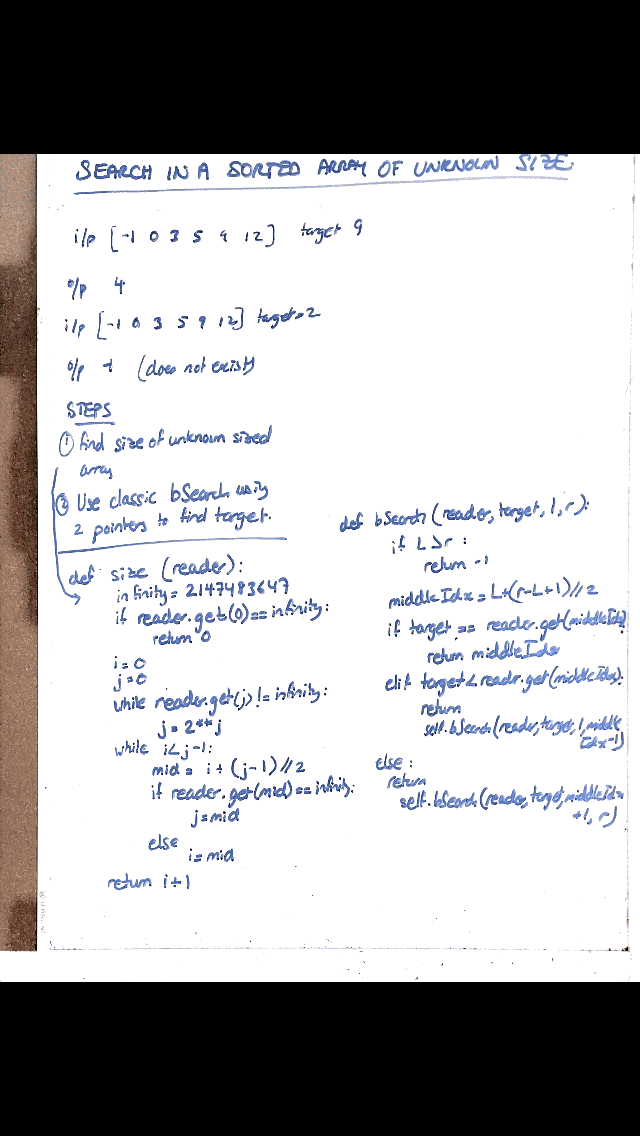 SEARCH IN A SORTED ARRAY OF UNKNOWN SIZE
i/p [-1 0 3 5 9 12] target 9
o/p 4
i/p [-1 0 3 5 9 12] target=2
o/p -1 (does not exist)
STEPS
① find size of unknown sized
array
② Use classic bSearch using
2 pointers to find target.
def size (reader):
infinity = 2147483647
if reader.get(0)== infinity:
return 0
i = 0
j = 0
while reader.get(j) != infinity:
j = 2**j
while i<j-1:
mid = i + (j-1)//2
if reader.get(mid) == infinity:
j=mid
else
i = mid
return i+1
def bSearch (reader, target, l, r):
if L>r :
return -1
middleIdx = L+(r-L+1)//2
if target == reader.get(middleIdx):
return middleIdx
elif target < reader.get(middleIdx):
return
self.bSearch(reader, target, l, middle
Idx-1)
else :
return
self.bSearch(reader, target, middleIdx
+1, r)